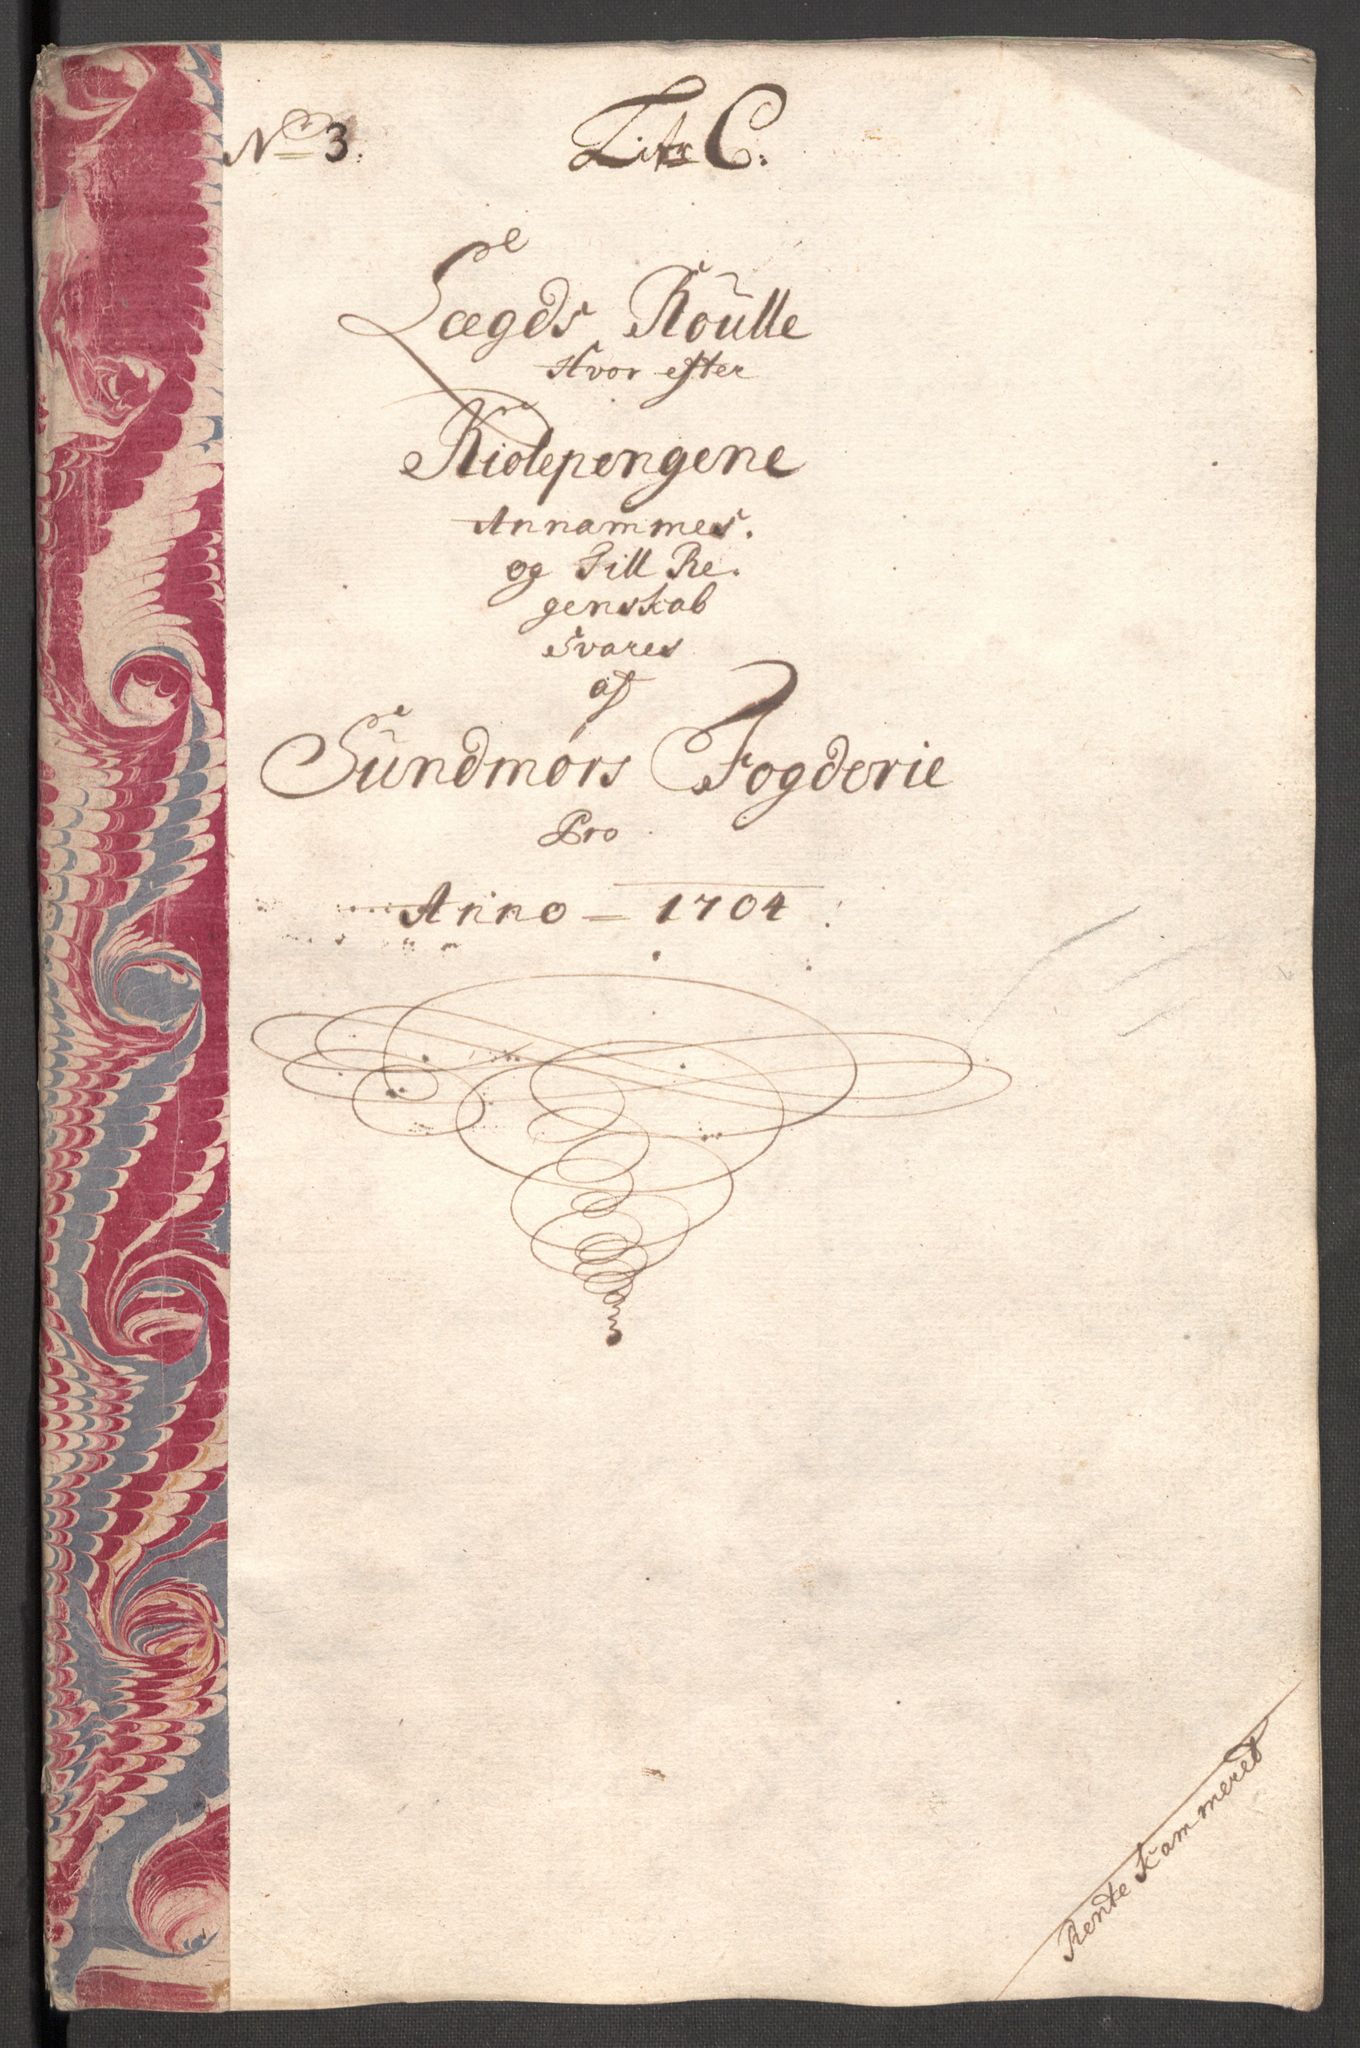 No 3.
Litr C.
Lægds Roulle
Hvor efter
Kiolepengene
Annammes.
og Till Re.
genskab
Svares
af
Sundmørs Fogderie
Pro
Anno - 1704
Rente Kammeret